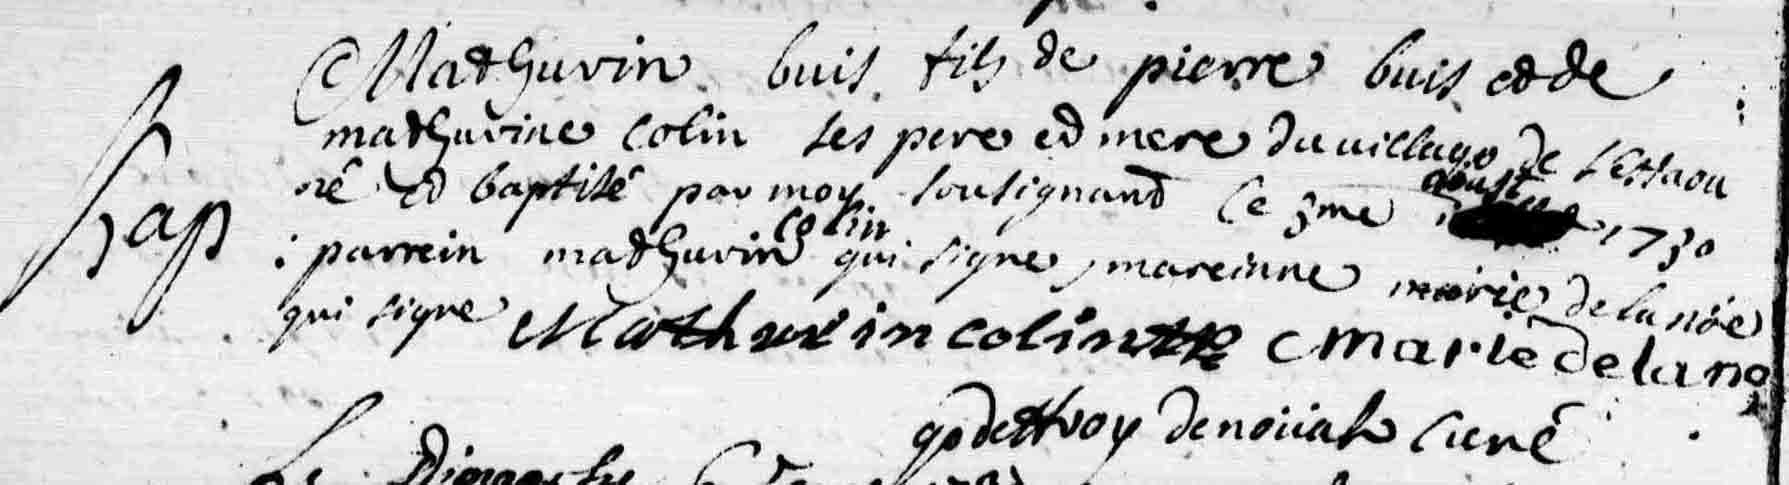 Mathurin buis fils de pierre buis et de
mathurine Colin ses pere et mere du village de
Bap né et baptisé par moy sousignant Ce 3me aoust 1730
parrein mathurin colin qui signe, mareinne marie de la nöe
qui signe Mathurin colin Marie de lano
godeffroy denoüah Curé